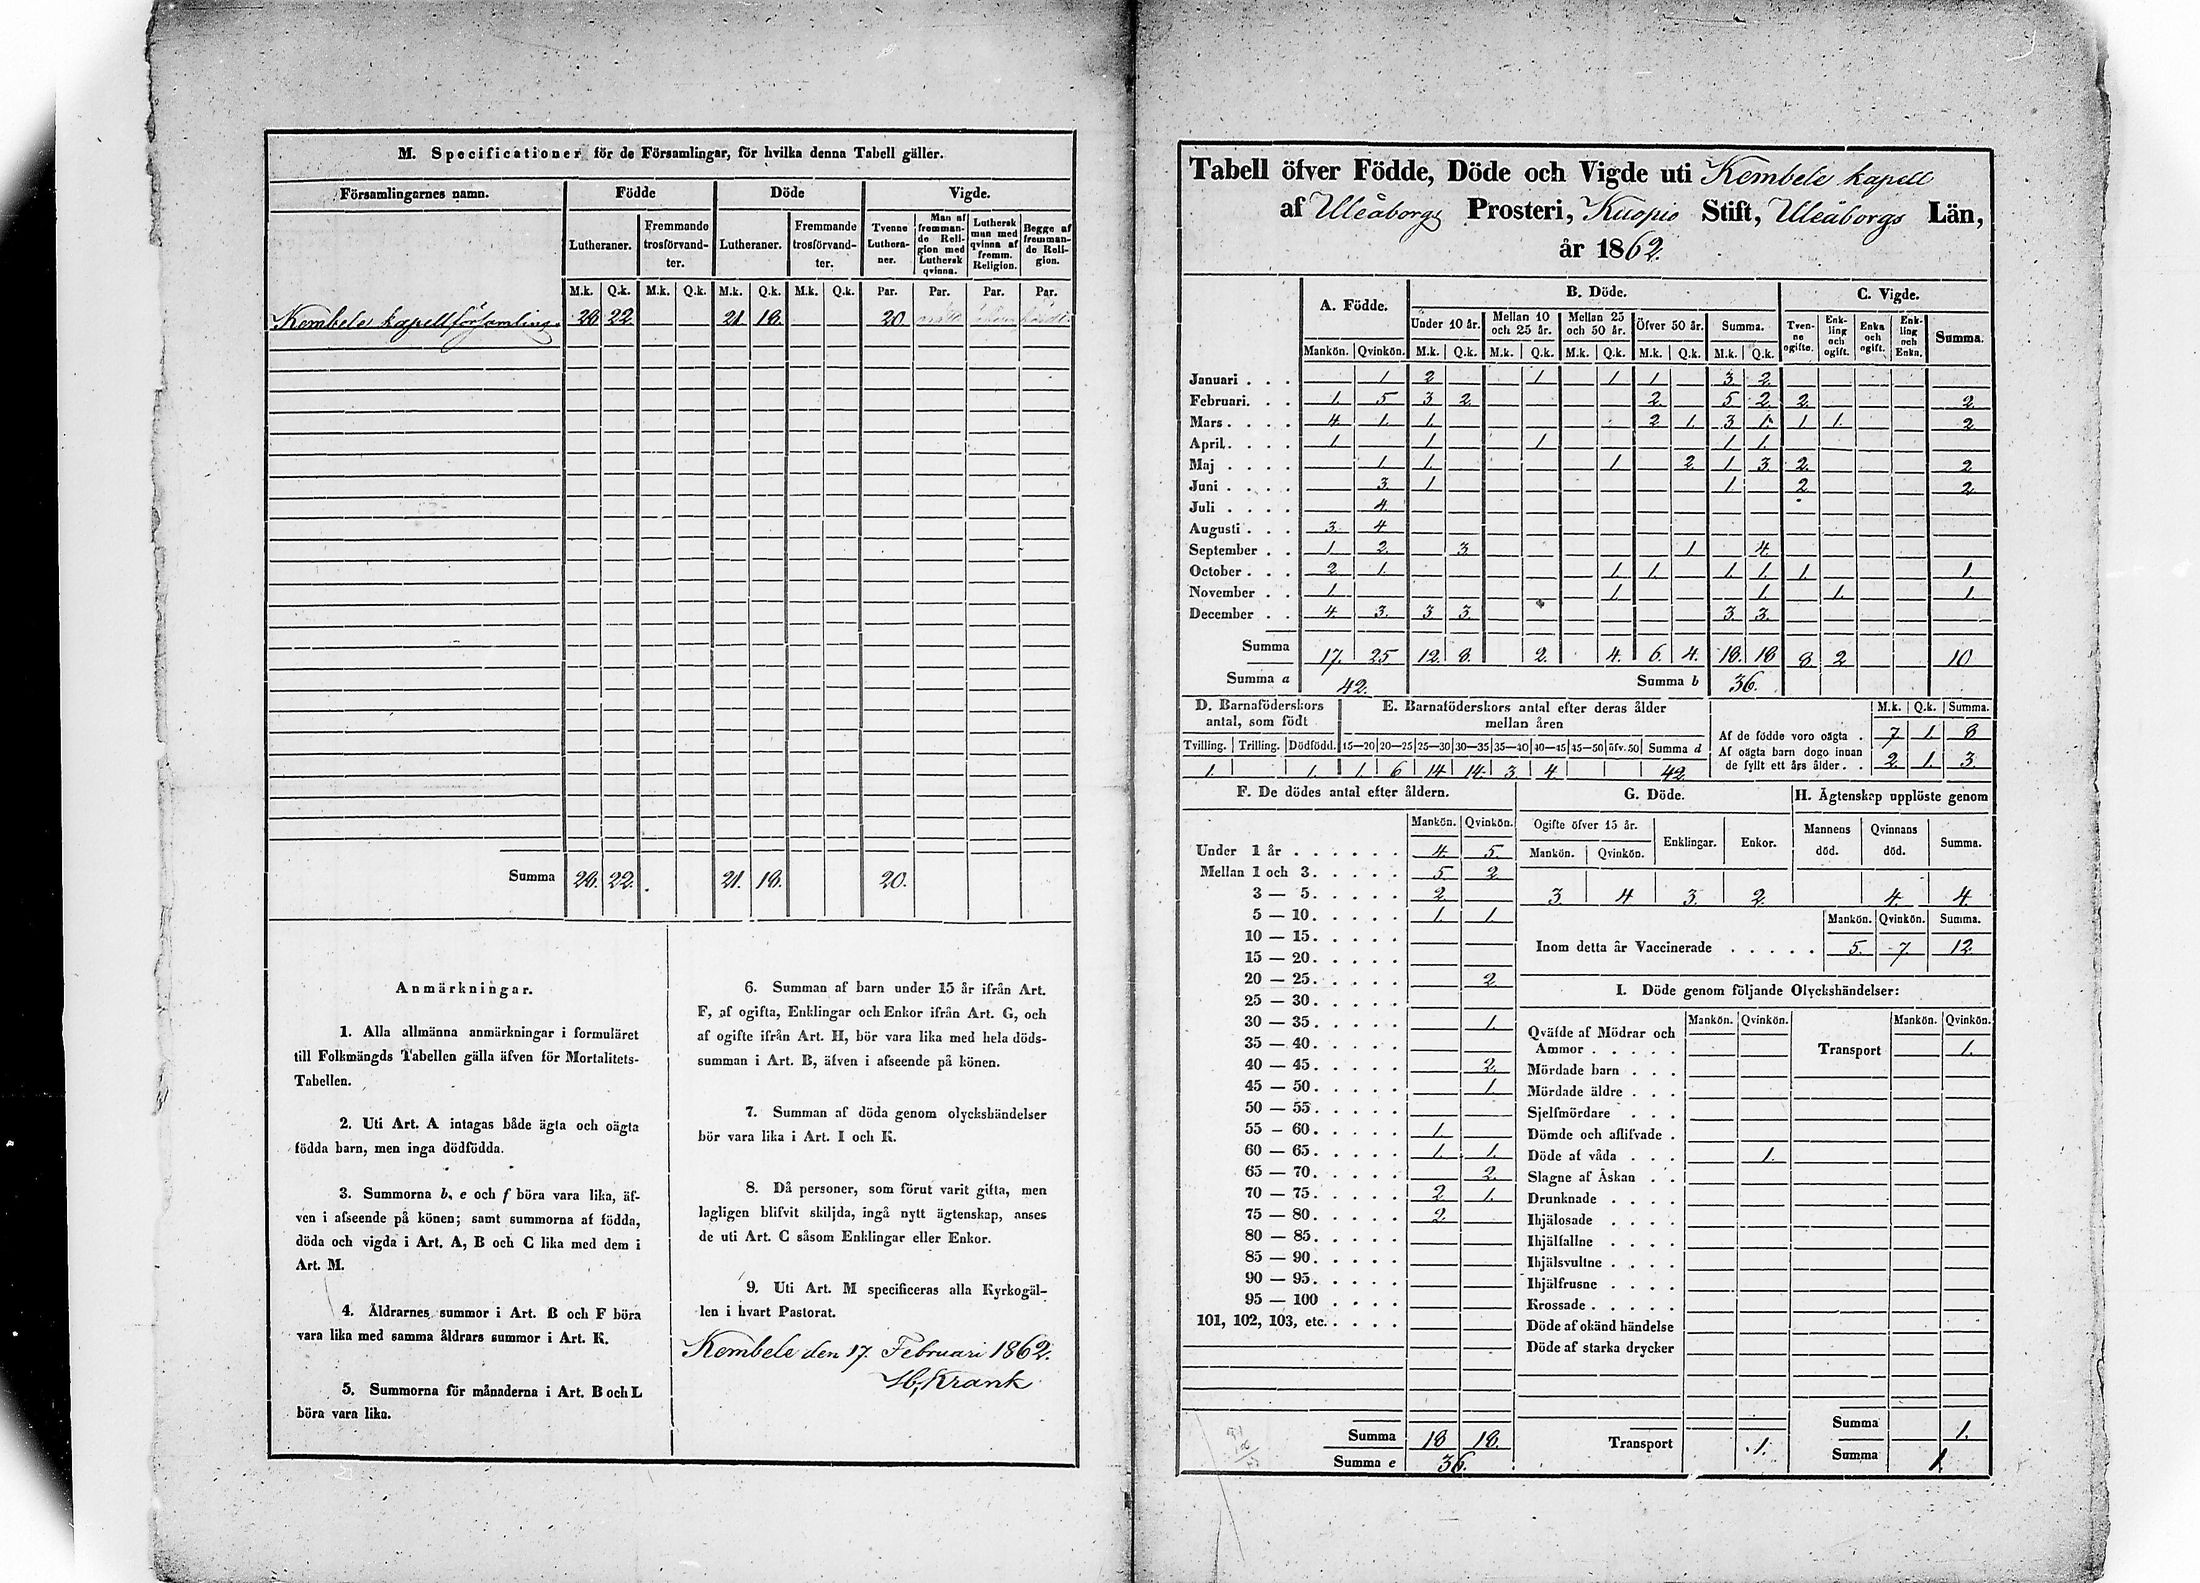 M. Specificationer för de Församlingar, för hvilka denna Tabell gäller.
Församlingarnes namn. Födde Döde Vigde.
Lutheraner. Fremmande trosförvandter. Lutheraner. Fremmande trosförvandter. Tvenne Lutheraner. Man af fremmande Religion med Luthersk qvinna. Luthersk man med qvinna af fremm. Religion. Begge af fremmande Religion.
M.k. Q.k. M.k. Q.k. M.k. Q.k. M.k. Q.k. Par. Par. Par. Par.
Kembele kapellförsamling. 28 22 21 18. 20
Summa 28. 22. 21. 18. 20.
Anmärkningar.
1. Alla allmänna anmärkningar i formuläret
till Folkmängds Tabellen gälla äfven för Mortalitets-
Tabellen.
2. Uti Art. A intagas både ägta och oägta
födda barn, men inga dödfödda.
3. Summorna b, e och f böra vara lika, äf-
ven i afseende på könen; samt summorna af födda,
döda och vigda i Art. A, B och C lika med dem i
Art. M.
4. Åldrarnes summor i Art. B och F böra
vara lika med samma åldrars summor i Art. K.
5. Summorna för månaderna i Art. B och L
böra vara lika.
6. Summan af barn under 15 år ifrån Art.
F, af ogifta, Enklingar och Enkor ifrån Art. G, och
af ogifte ifrån Art. H, bör vara lika med hela döds-
summan i Art. B, äfven i afseende på könen.
7. Summan af döda genom olyckshändelser
bör vara lika i Art. I och K.
8. Då personer, som förut varit gifta, men
lagligen blifvit skiljda, ingå nytt ägtenskap, anses
de uti Art. C såsom Enklingar eller Enkor.
9. Uti Art. M specificeras alla Kyrkogäl-
len i hvart Pastorat.
Kembele den 17. Februari 1862.
Krank
Tabell öfver Födde, Döde och Vigde uti Kembele kapell
af Uleåborgs Prosteri, Kuopio Stift, Uleåborgs Län,
år 1862.
A. Födde. B. Döde. C. Vigde.
Under 10 år. Mellan 10 och 25 år. Mellan 25 och 50 år. Öfver 50 år. Summa. Tvenne ogifte. Enkling och ogift. Enka och ogift. Enkling och Enka. Summa.
Mankön. Qvinkön. M.k. Q.k. M.k. Q.k. M.k. Q.k. M.k. Q.k. M.k. Q.k.
Januari . . . 1 2 1 1 1 3 2
Februari. . . 1. 5 3 2 2 5 2 2 2
Mars . . . . 4 1. 1. 2 1. 3 1. 1 1. 2
April. . . . 1. 1 1. 1 1.
Maj . . . . 1 1. 1 2 1 3 2 2
Juni . . . . 3 1 1. 2 2
Juli . . . . 4.
Augusti . . . 3 4
September . . 1 2. 3 1 4.
October . . . 2 1. 1. 1. 1. 1. 1. 1.
November . . 1 1 1 1. 1.
December . . 4. 3. 3 3. 3 3.
Summa 17. 25 12. 8. 2. 4. 6. 4. 18. 18 8 2 10
Summa a 42. Summa b 36.
D. Barnaföderskors antal, som födt
Tvilling. Trilling. Dödfödd.
1. 1.
E. Barnaföderskors antal efter deras ålder mellan åren
15—20 20—25 25—30 30—35 35—40 40—45 45—50 öfv. 50 Summa d
1. 6 14 14. 3. 4 42
M.k. Q.k. Summa.
Af de födde voro oägta . 7 1. 8
Af oägta barn dogo innan de fyllt ett års ålder. . 2. 1. 3.
F. De dödes antal efter åldern.
Mankön. Qvinkön.
Under 1 år . . . . . . 4. 5.
Mellan 1 och 3. . . . . 5 2
3 — 5. . . . . 2.
5 — 10. . . . . 1. 1
10 — 15. . . . .
15 — 20. . . . .
20 — 25. . . . . 2
25 — 30. . . . .
30 — 35. . . . . 1.
35 — 40. . . . .
40 — 45. . . . . 2.
45 — 50. . . . . 1.
50 — 55. . . . .
55 — 60. . . . . 1.
60 — 65. . . . . 1. 1.
65 — 70. . . . . 2.
70 — 75. . . . . 2 1.
75 — 80. . . . . 2.
80 — 85. . . . .
85 — 90. . . . .
90 — 95. . . . .
95 — 100 . . . .
101, 102, 103, etc. . . . .
Summa 18 18.
Summa e 36.
G. Döde.
Ogifte öfver 15 år. Enklingar. Enkor.
Mankön. Qvinkön.
3. 4 3. 2.
H. Ägtenskap upplöste genom
Mannens död. Qvinnans död. Summa.
4. 4.
Mankön. Qvinkön. Summa.
Inom detta år Vaccinerade . . . . . 5. 7. 12.
I. Döde genom följande Olyckshändelser:
Mankön. Qvinkön. Mankön. Qvinkön.
Qväfde af Mödrar och
Ammor . . . . . Transport 1.
Mördade barn . . .
Mördade äldre . . .
Sjelfmördare . . .
Dömde och aflifvade .
Döde af våda . . . 1.
Slagne af Åskan . .
Drunknade . . . .
Ihjälosade . . . .
Ihjälfallne . . . .
Ihjälsvultne . . . .
Ihjälfrusne . . . .
Krossade . . . . .
Döde af okänd händelse
Döde af starka drycker
Transport 1. Summa 1.
Summa 1.